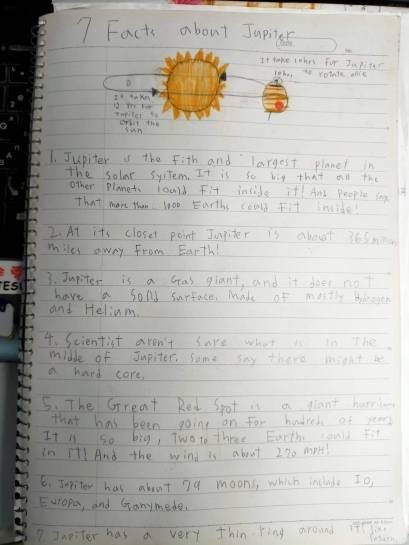 7 Facts about Jupiter
Date
No.
It take 10hrs for Jupiter
10hr, to rotate once
It takes
12 yrs for
Jupiter to
orbit the
sun
1. Jupiter is the fith and largest planet in
the solar system. It is so big that all the
other planets could fit inside it! And people say
that more than 1000 Earths could fit inside!
2. At its closet point Jupiter is about 365 million
miles away from Earth!
3. Jupiter is a Gas giant, and it does not
have a solid surface. Made of mostly hydrogen
and Helium.
4. Scientist aren't sure what is in the
middle of Jupiter. Some say there might be
a hard core.
5. The Great Red Spot is a giant hurricane
that has been going on for hundreds of years
It is so big, two to three Earths could fit
in it! And the wind is about 270 mph!
6. Jupiter has about 79 moons, which include Io,
Europa, and Ganymede.
7. Jupiter has a very thin ring around it! like
saturn